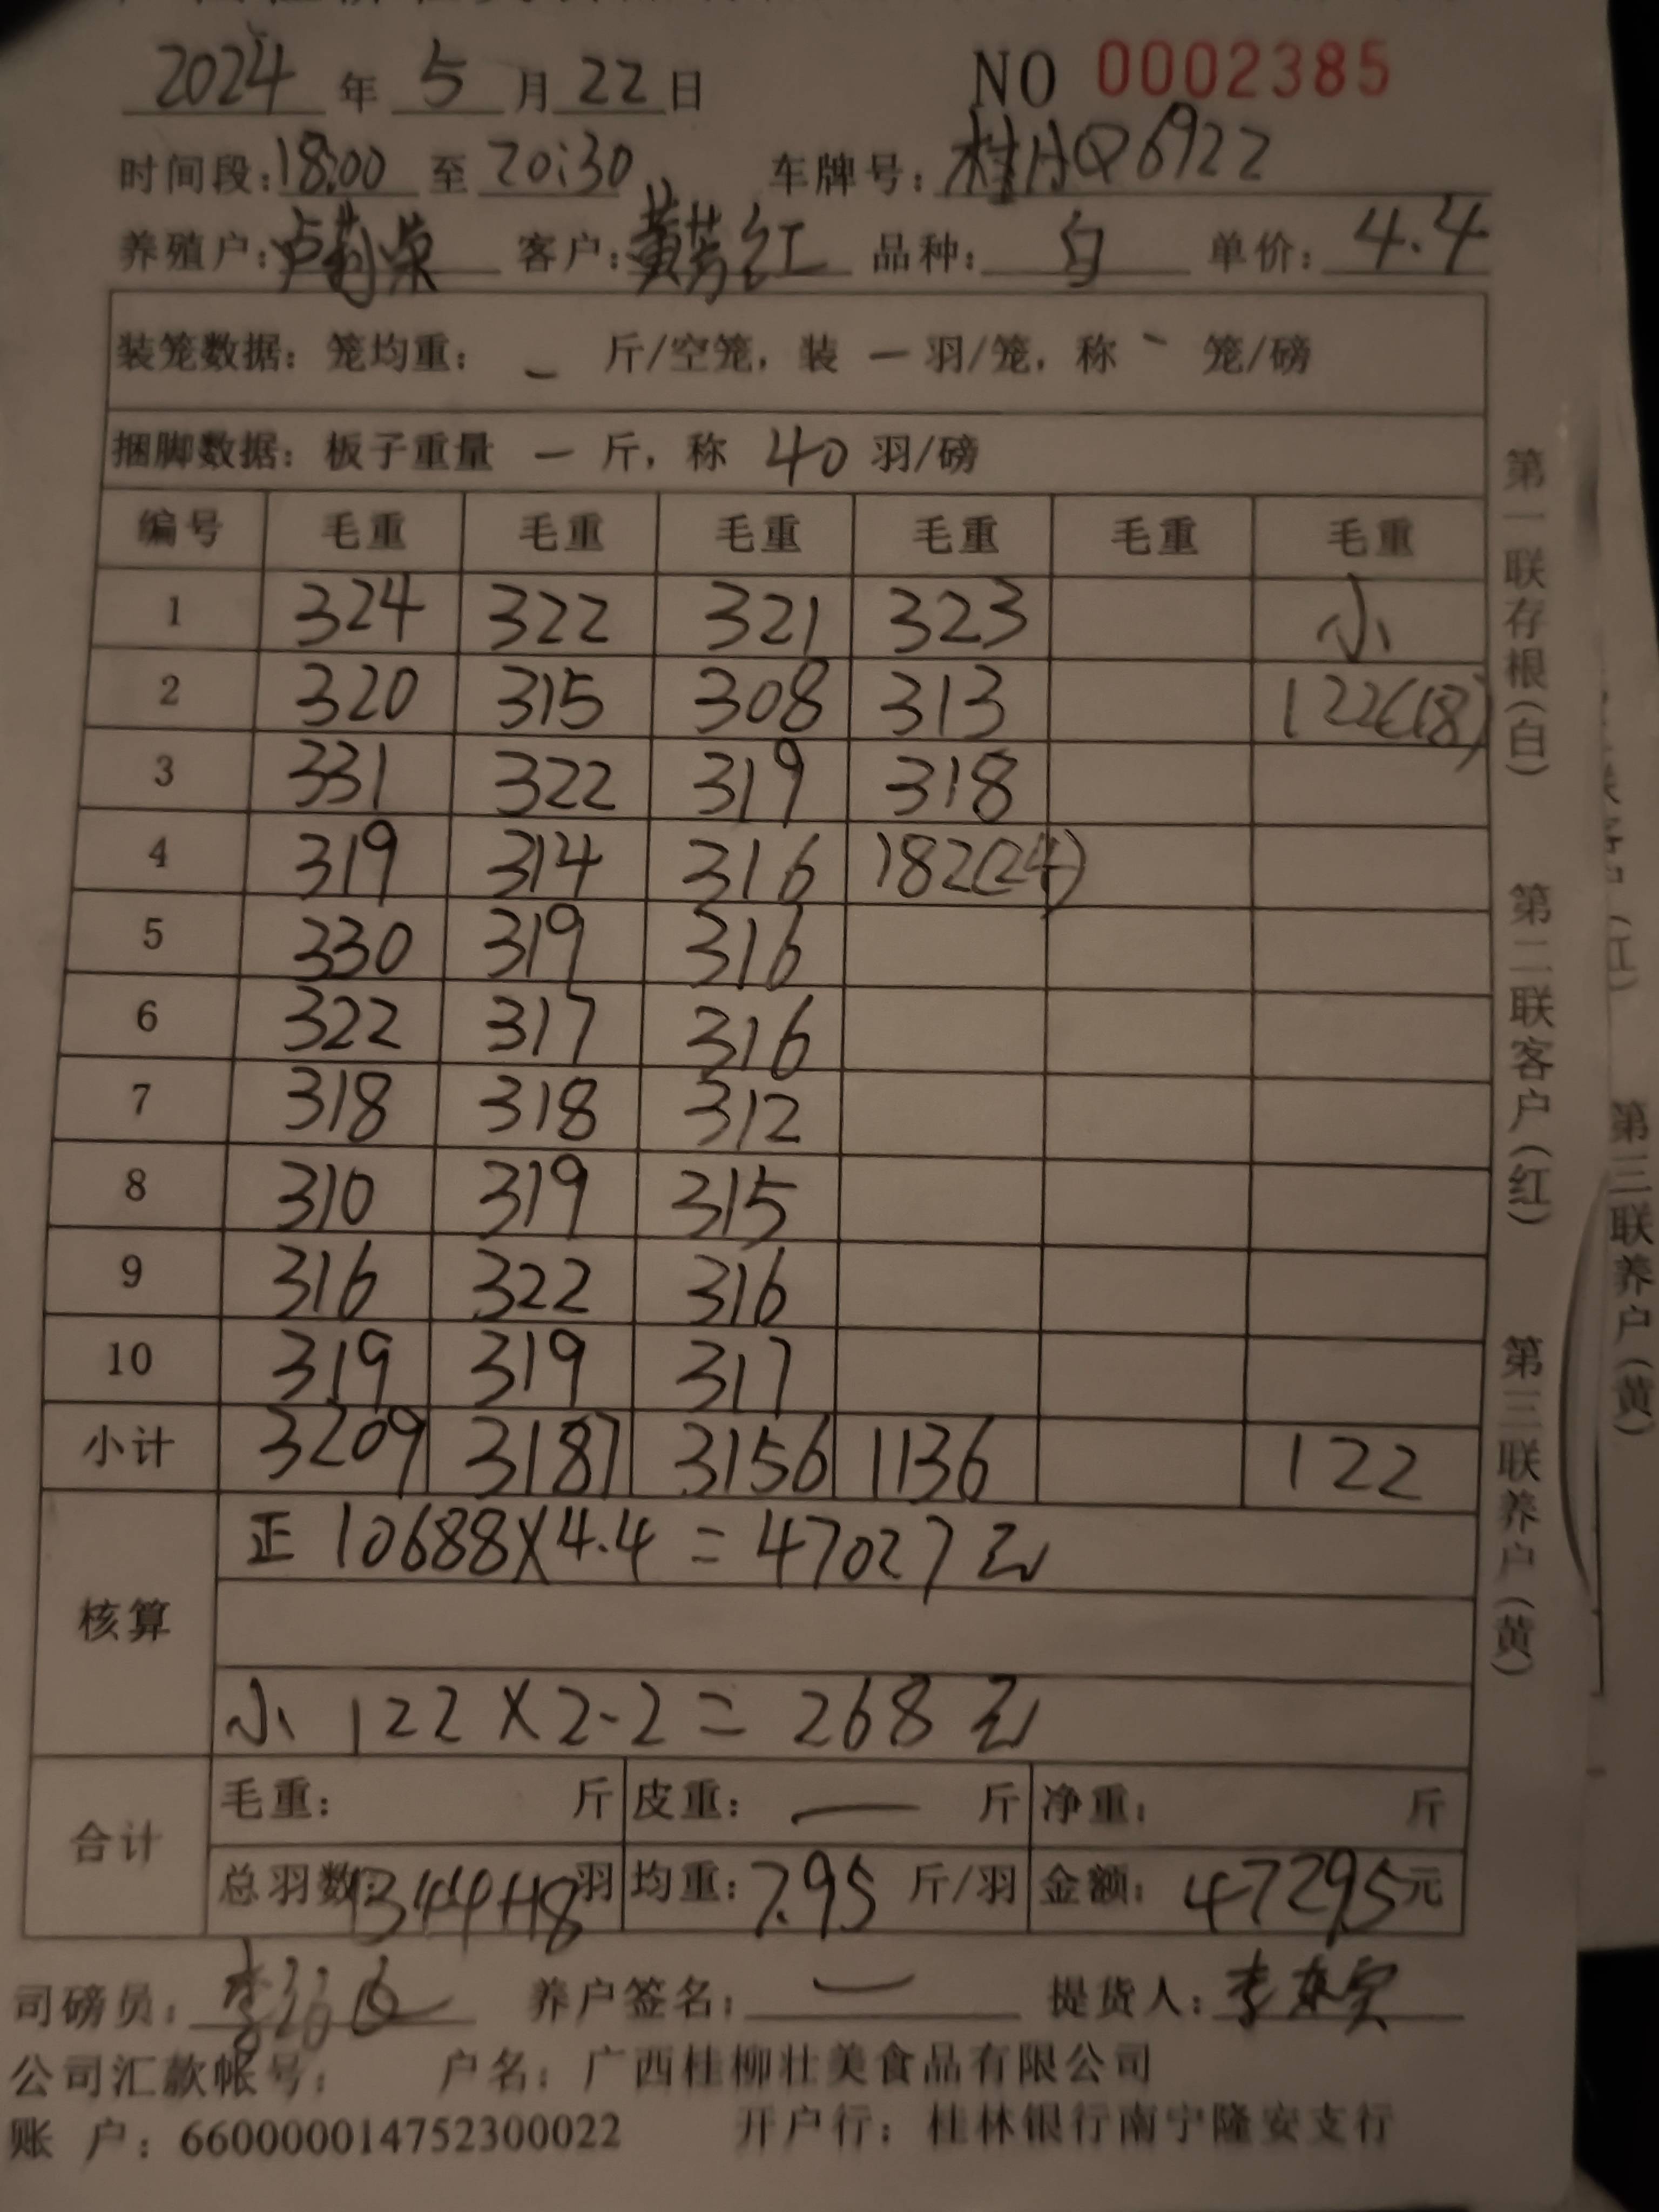 2024 年 5 月 22 日 NO 0002385
时间段:18:00 至 20:30 车牌号:桂HQ6922
养殖户:卢莉荣 客户:黄芳红 品种: 白 单价: 4.4
装笼数据: 笼均重: - 斤/空笼, 装 一 羽/笼, 称 - 笼/磅
捆脚数据: 板子重量 一 斤, 称 40 羽/磅
编号 毛重 毛重 毛重 毛重 毛重 毛重
1 324 322 321 323 小
2 320 315 308 313 122(18)
3 331 322 319 318
4 319 314 316 182(24)
5 330 319 316
6 322 317 316
7 318 318 312
8 310 319 315
9 316 322 316
10 319 319 317
小计 3209 3187 3156 1136 122
核算
正 10688X4.4 = 47027元
小 122 X 2.2 = 268 元
合计
毛重: 斤 皮重: — 斤 净重: 斤
总羽数:1344+18羽 均重:7.95 斤/羽 金额: 47295元
司磅员: 养户签名: 一 提货人: 李
公司汇款帐号: 户名: 广西桂柳壮美食品有限公司
账 户: 660000014752300022 开户行: 桂林银行南宁隆安支行
第一联存根(白) 第二联客户(红) 第三联养户(黄)
第三联养户(黄)